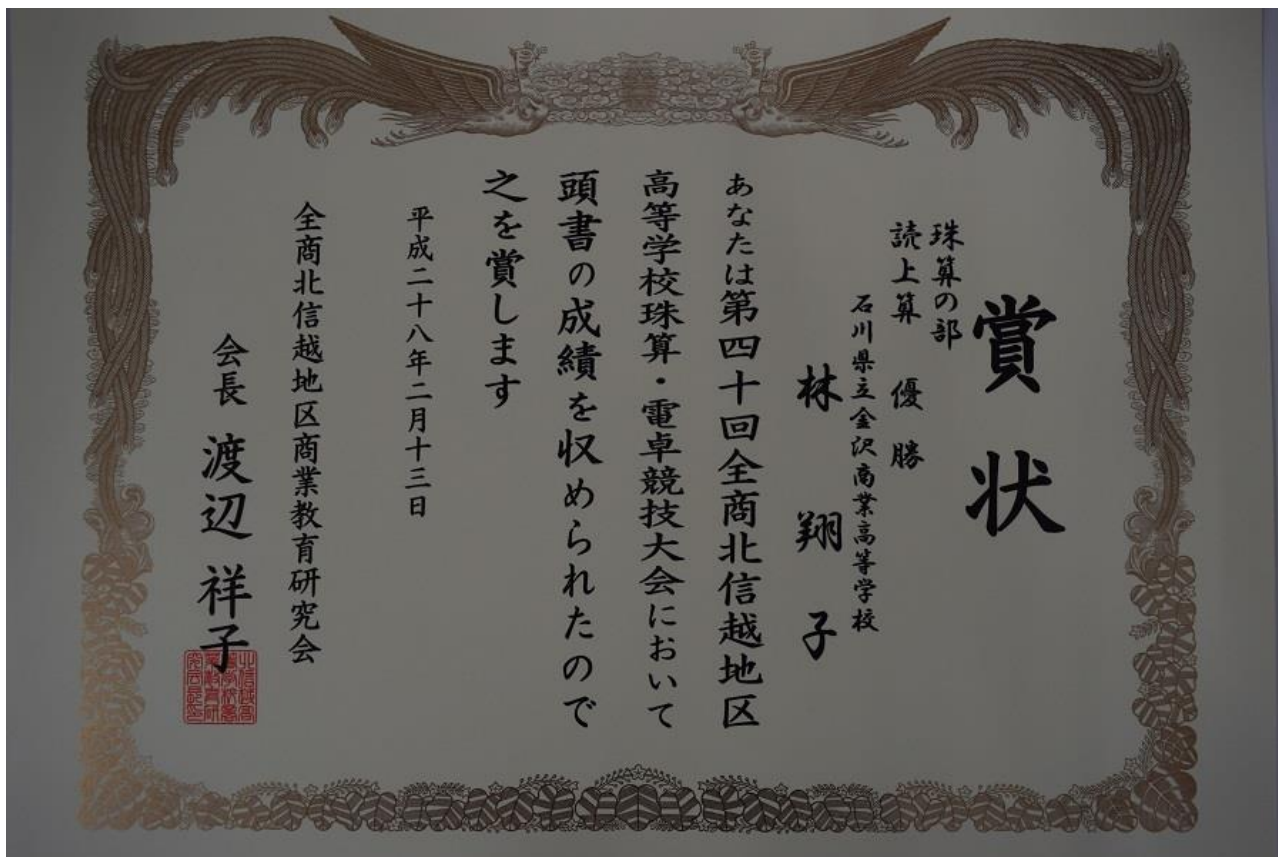 賞状
珠算の部
読上算 優勝
石川県立金沢商業高等学校
林 翔子
あなたは第四十回全商北信越地区
高等学校珠算・電卓競技大会において
頭書の成績を収められたので
之を賞します
平成二十八年二月十三日
全商北信越地区商業教育研究会
会長 渡辺 祥子